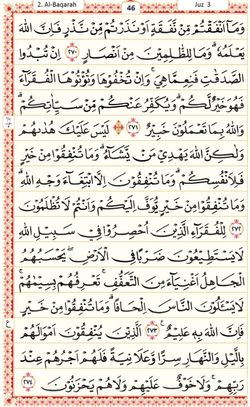 2. Al-Baqarah 46 Juz 3
وَمَآ اَنْفَقْتُمْ مِّنْ نَّفَقَةٍ اَوْ نَذَرْتُمْ مِّنْ نَّذْرٍ فَاِنَّ اللّٰهَ
يَعْلَمُهٗ ۗ وَمَا لِلظّٰلِمِيْنَ مِنْ اَنْصَارٍ ٢٧٠ اِنْ تُبْدُوا
الصَّدَقٰتِ فَنِعِمَّا هِيَۚ وَاِنْ تُخْفُوْهَا وَتُؤْتُوْهَا الْفُقَرَاۤءَ
فَهُوَ خَيْرٌ لَّكُمْ ۗ وَيُكَفِّرُ عَنْكُمْ مِّنْ سَيِّاٰتِكُمْ ۗ
وَاللّٰهُ بِمَا تَعْمَلُوْنَ خَبِيْرٌ ٢٧١ لَيْسَ عَلَيْكَ هُدٰىهُمْ
وَلٰكِنَّ اللّٰهَ يَهْدِيْ مَنْ يَّشَاۤءُ ۗ وَمَا تُنْفِقُوْا مِنْ خَيْرٍ
فَلِاَنْفُسِكُمْ ۗ وَمَا تُنْفِقُوْنَ اِلَّا ابْتِغَاۤءَ وَجْهِ اللّٰهِ ۗ
وَمَا تُنْفِقُوْا مِنْ خَيْرٍ يُّوَفَّ اِلَيْكُمْ وَاَنْتُمْ لَا تُظْلَمُوْنَ
٢٧٢ لِلْفُقَرَاۤءِ الَّذِيْنَ اُحْصِرُوْا فِيْ سَبِيْلِ اللّٰهِ
لَا يَسْتَطِيْعُوْنَ ضَرْبًا فِى الْاَرْضِۖ يَحْسَبُهُمُ
الْجَاهِلُ اَغْنِيَاۤءَ مِنَ التَّعَفُّفِۚ تَعْرِفُهُمْ بِسِيْمٰهُمْۚ
لَا يَسْـَٔلُوْنَ النَّاسَ اِلْحَافًا ۗ وَمَا تُنْفِقُوْا مِنْ خَيْرٍ
فَاِنَّ اللّٰهَ بِهٖ عَلِيْمٌ ٢٧٣ اَلَّذِيْنَ يُنْفِقُوْنَ اَمْوَالَهُمْ
بِالَّيْلِ وَالنَّهَارِ سِرًّا وَّعَلَانِيَةً فَلَهُمْ اَجْرُهُمْ عِنْدَ
رَبِّهِمْۚ وَلَا خَوْفٌ عَلَيْهِمْ وَلَا هُمْ يَحْزَنُوْنَ ٢٧٤